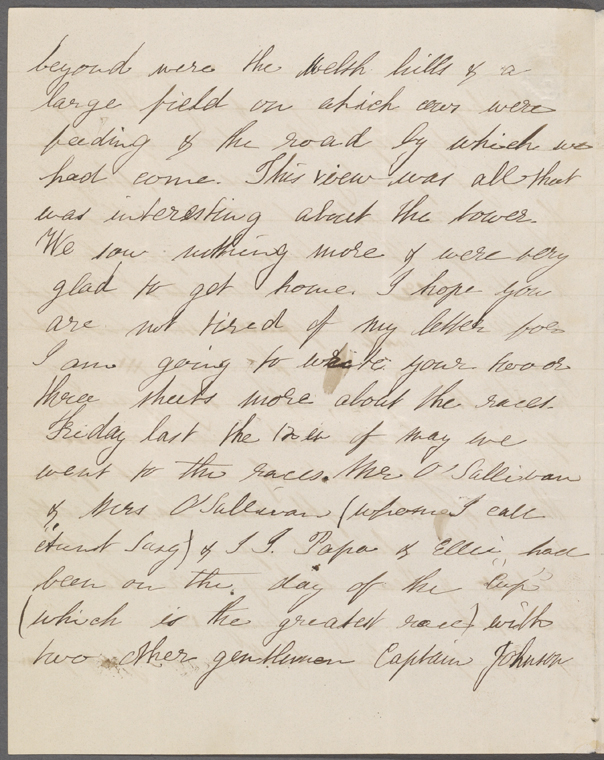 beyond were the Welsh hills & a
large field on which cows were
feeding & the road by which we
had come. This view was all that
was interesting about the tower.
We saw nothing more & were very
glad to get home. I hope you
are not tired of my letter for
I am going to write your two or
three sheets more about the races.
Friday last the of May we
went to the races. Mr O'Sullivan
& Mrs O'Sullivan (whom I call
"Aunt ) & I. Papa & Ellie had
been on the day of the "Cup"
(which is the greatest race) with
two other gentlemen Captain Johnson